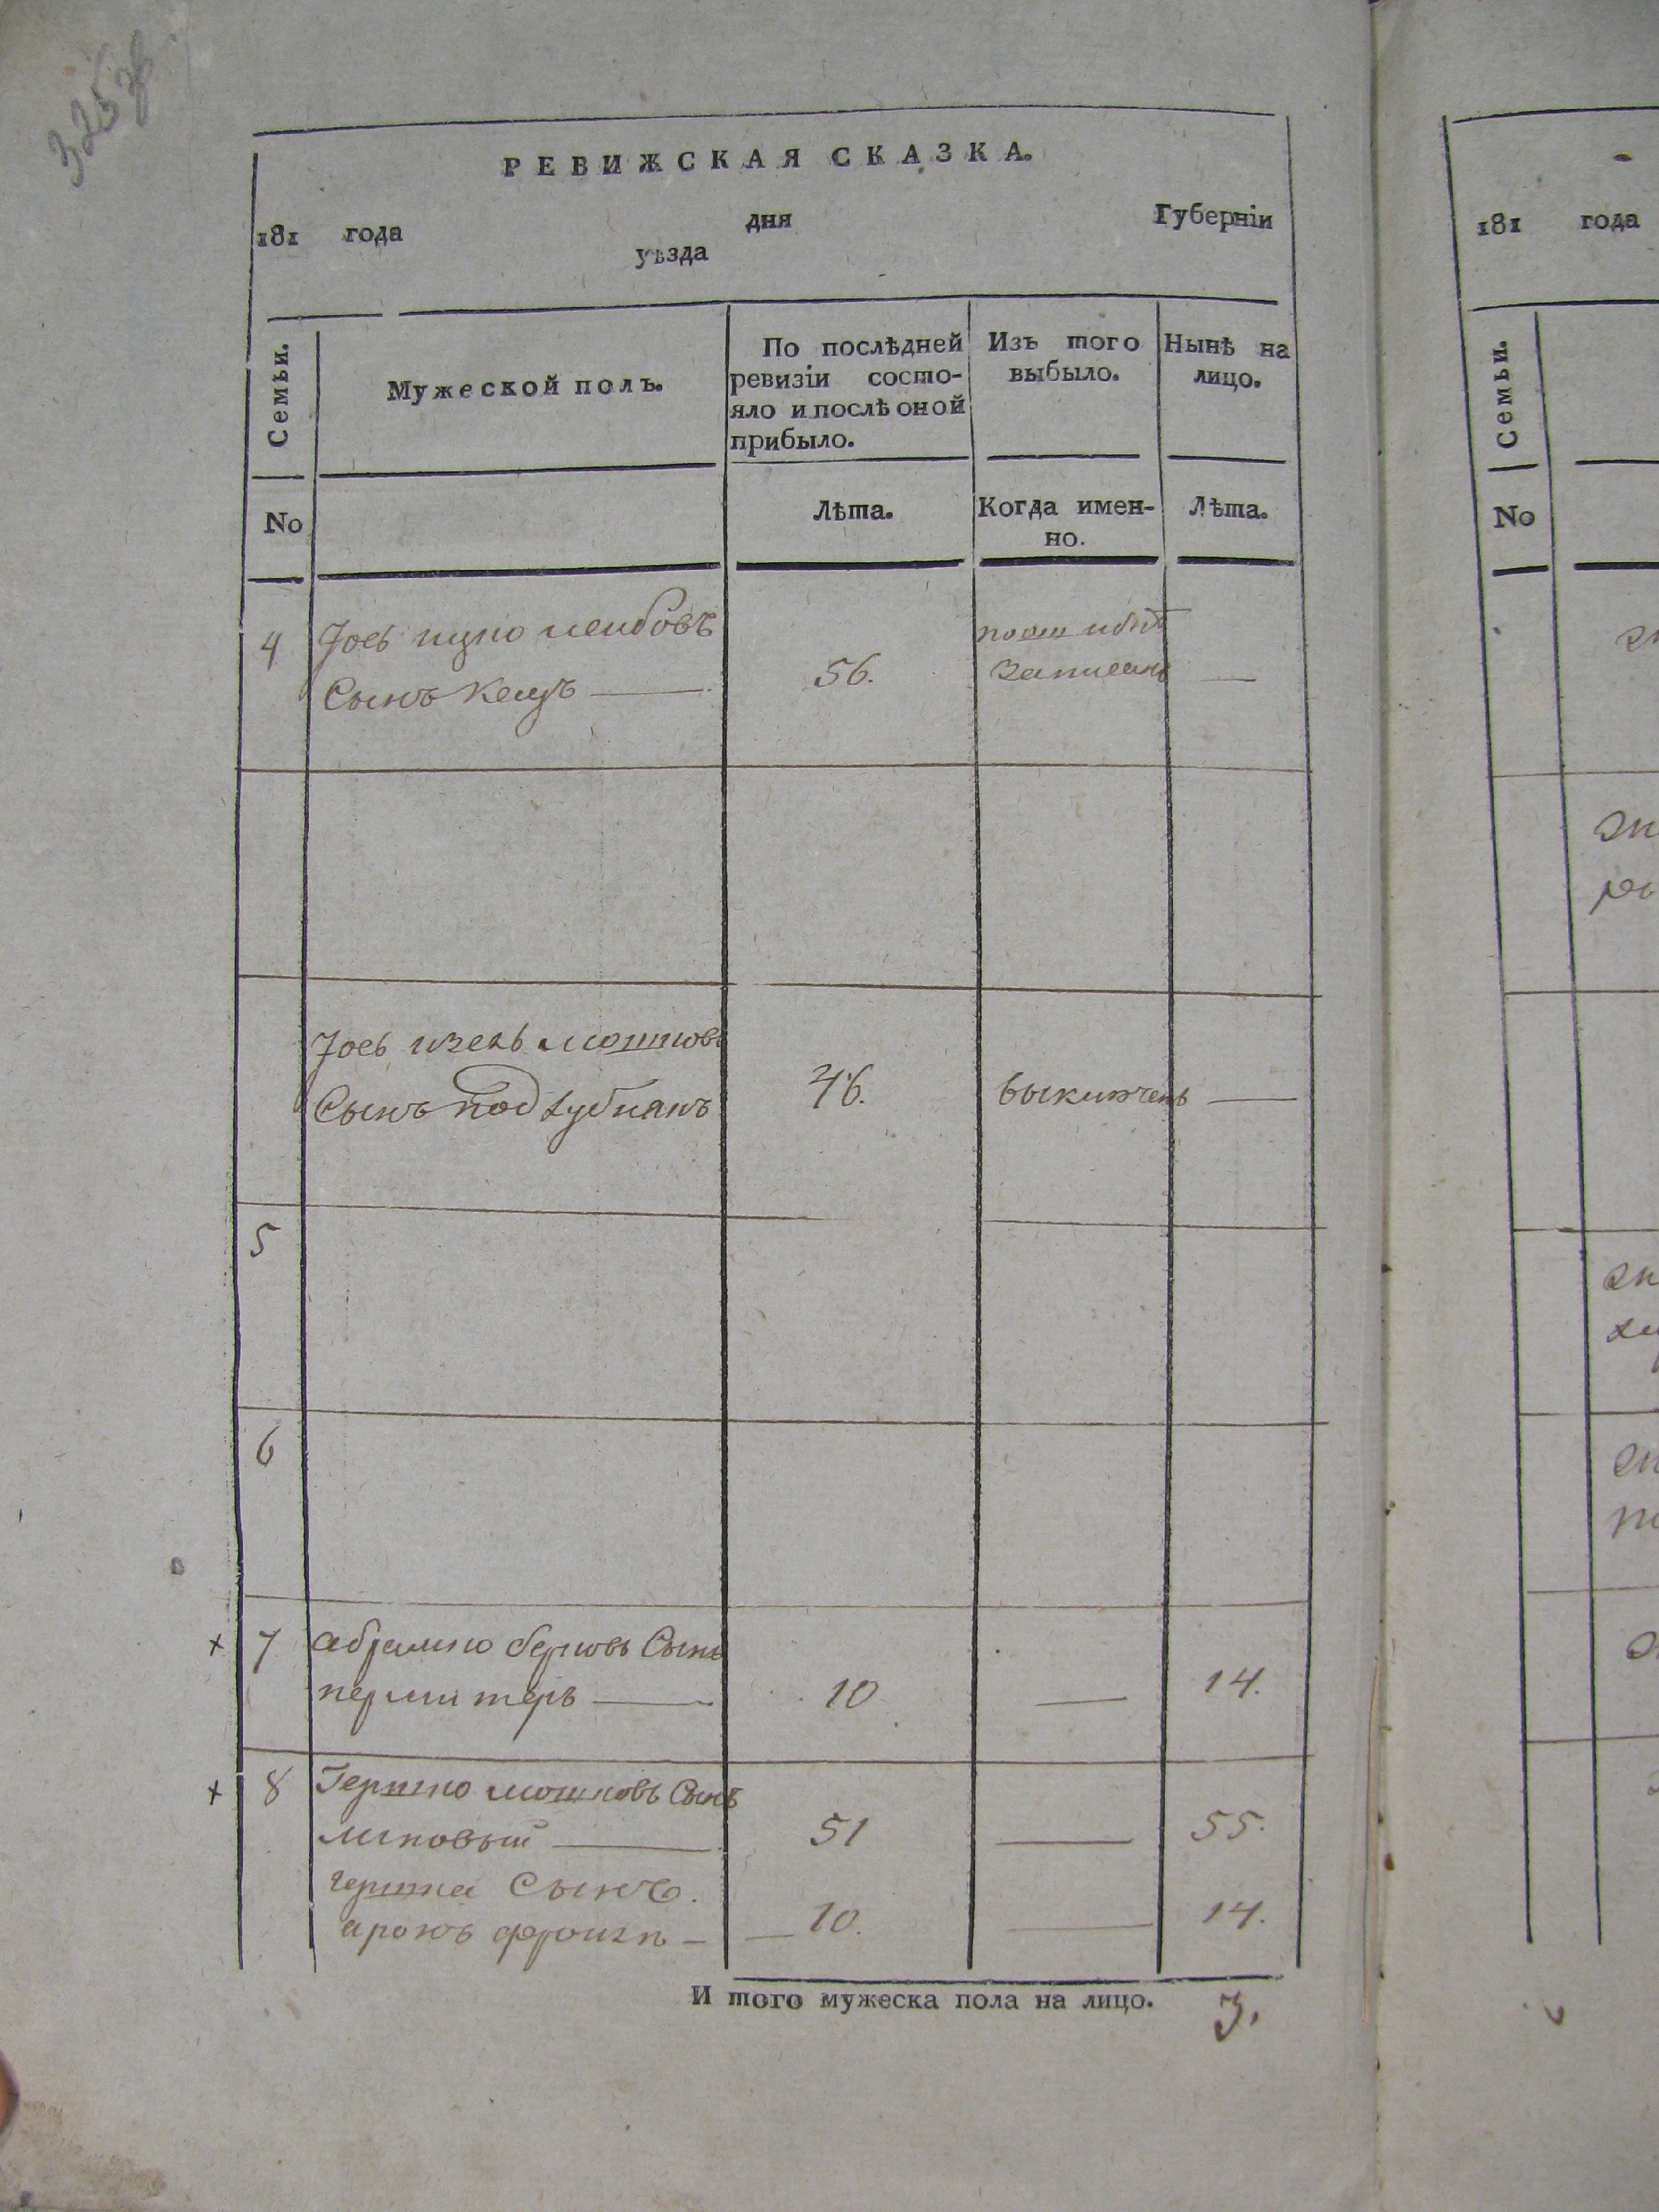 325
РЕВИЖСКАЯ СКАЗКА.
181 года дня Губерніи
уѣзда
Семьи.
Мужеской полъ.
По послѣдней
ревизіи состо-
яло и послѣ оной
прибыло.
Изъ того
выбыло.
Нынѣ на
лицо.
No
Лѣта.
Когда имен-
но.
Лѣта.
4 Іось ицко лейбовъ
Сынъ кацъ — 56. записанъ —
Іось мошков
Сынъ 46. выключенъ —
5
6
+ 7 абрамко берковъ Сынъ
10 — 14.
+ 8 Гершко мошковъ Сынъ
липовый — 51 — 55.
гершка Сынъ.
аронъ — 10. — 14.
И того мужеска пола на лицо. 3.
181 года
Семьи.
No